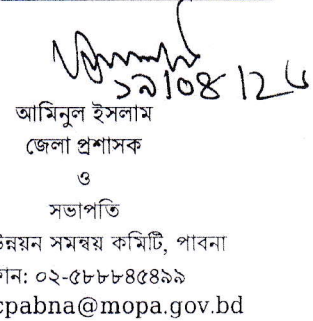 ১৯/০৪/২৬
আমিনুল ইসলাম
জেলা প্রশাসক
ও
সভাপতি
উন্নয়ন সমন্বয় কমিটি, পাবনা
ফোন: ০২-৫৮৮৮৪৫৪৯৯
cpabna@mopa.gov.bd